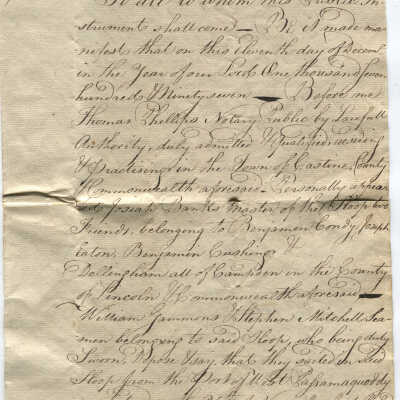 To all to whom this Public in-
strument shall come — Be it made ma-
nifest that on this Eleventh day of Decem
in the Year of our Lord One thousand Seven
hundred & Ninety seven — Before me
Thomas Phillips Notary Public by Lawfull
Authority, duly admitted & Qualified residing
& Practising in the Town of Castine, County
Commonwealth aforesaid — Personally appear
Joseph Banks Master of the Sloop
Friends, belonging to Benjamin Condy, Joseph
Eaton, Benjamin Cushing &
Dellingham all of Campden in the County
of Lincoln & Commonwealth aforesaid —
William Simmons & Stephen Mitchell Sea-
men belonging to said Sloop, who being duly
Sworn, Depose & say, that they sailed in said
Sloop from the Port of West Passamaquoddy